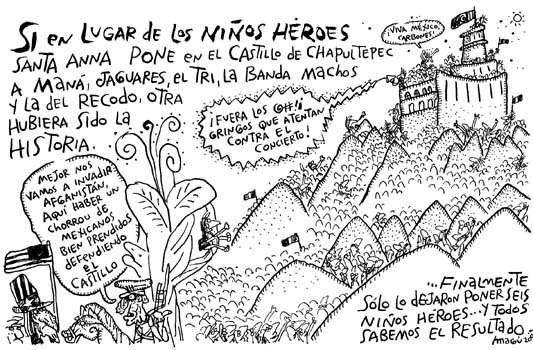 SI EN LUGAR DE LOS NIÑOS HÉROES
SANTA ANNA PONE EN EL CASTILLO DE CHAPULTEPEC
A MANÁ, JAGUARES, EL TRI, LA BANDA MACHOS
Y LA DEL RECODO, OTRA
HUBIERA SIDO LA
HISTORIA.
¡VIVA MÉXICO,
CARBONES!
¡FUERA LOS @#!¡
GRINGOS QUE ATENTAN
CONTRA EL
CONCIERTO!
MEJOR NOS
VAMOS A INVADIR
AFGANISTÁN,
AQUÍ HABER UN
CHORROU DE
MEXICANOS
BIEN PRENDIDOS
DEFENDIENDO
EL
CASTILLO
...FINALMENTE
SÓLO LO DEJARON PONER SEIS
NIÑOS HÉROES...Y TODOS
SABEMOS EL RESULTADO.
MAGÚ